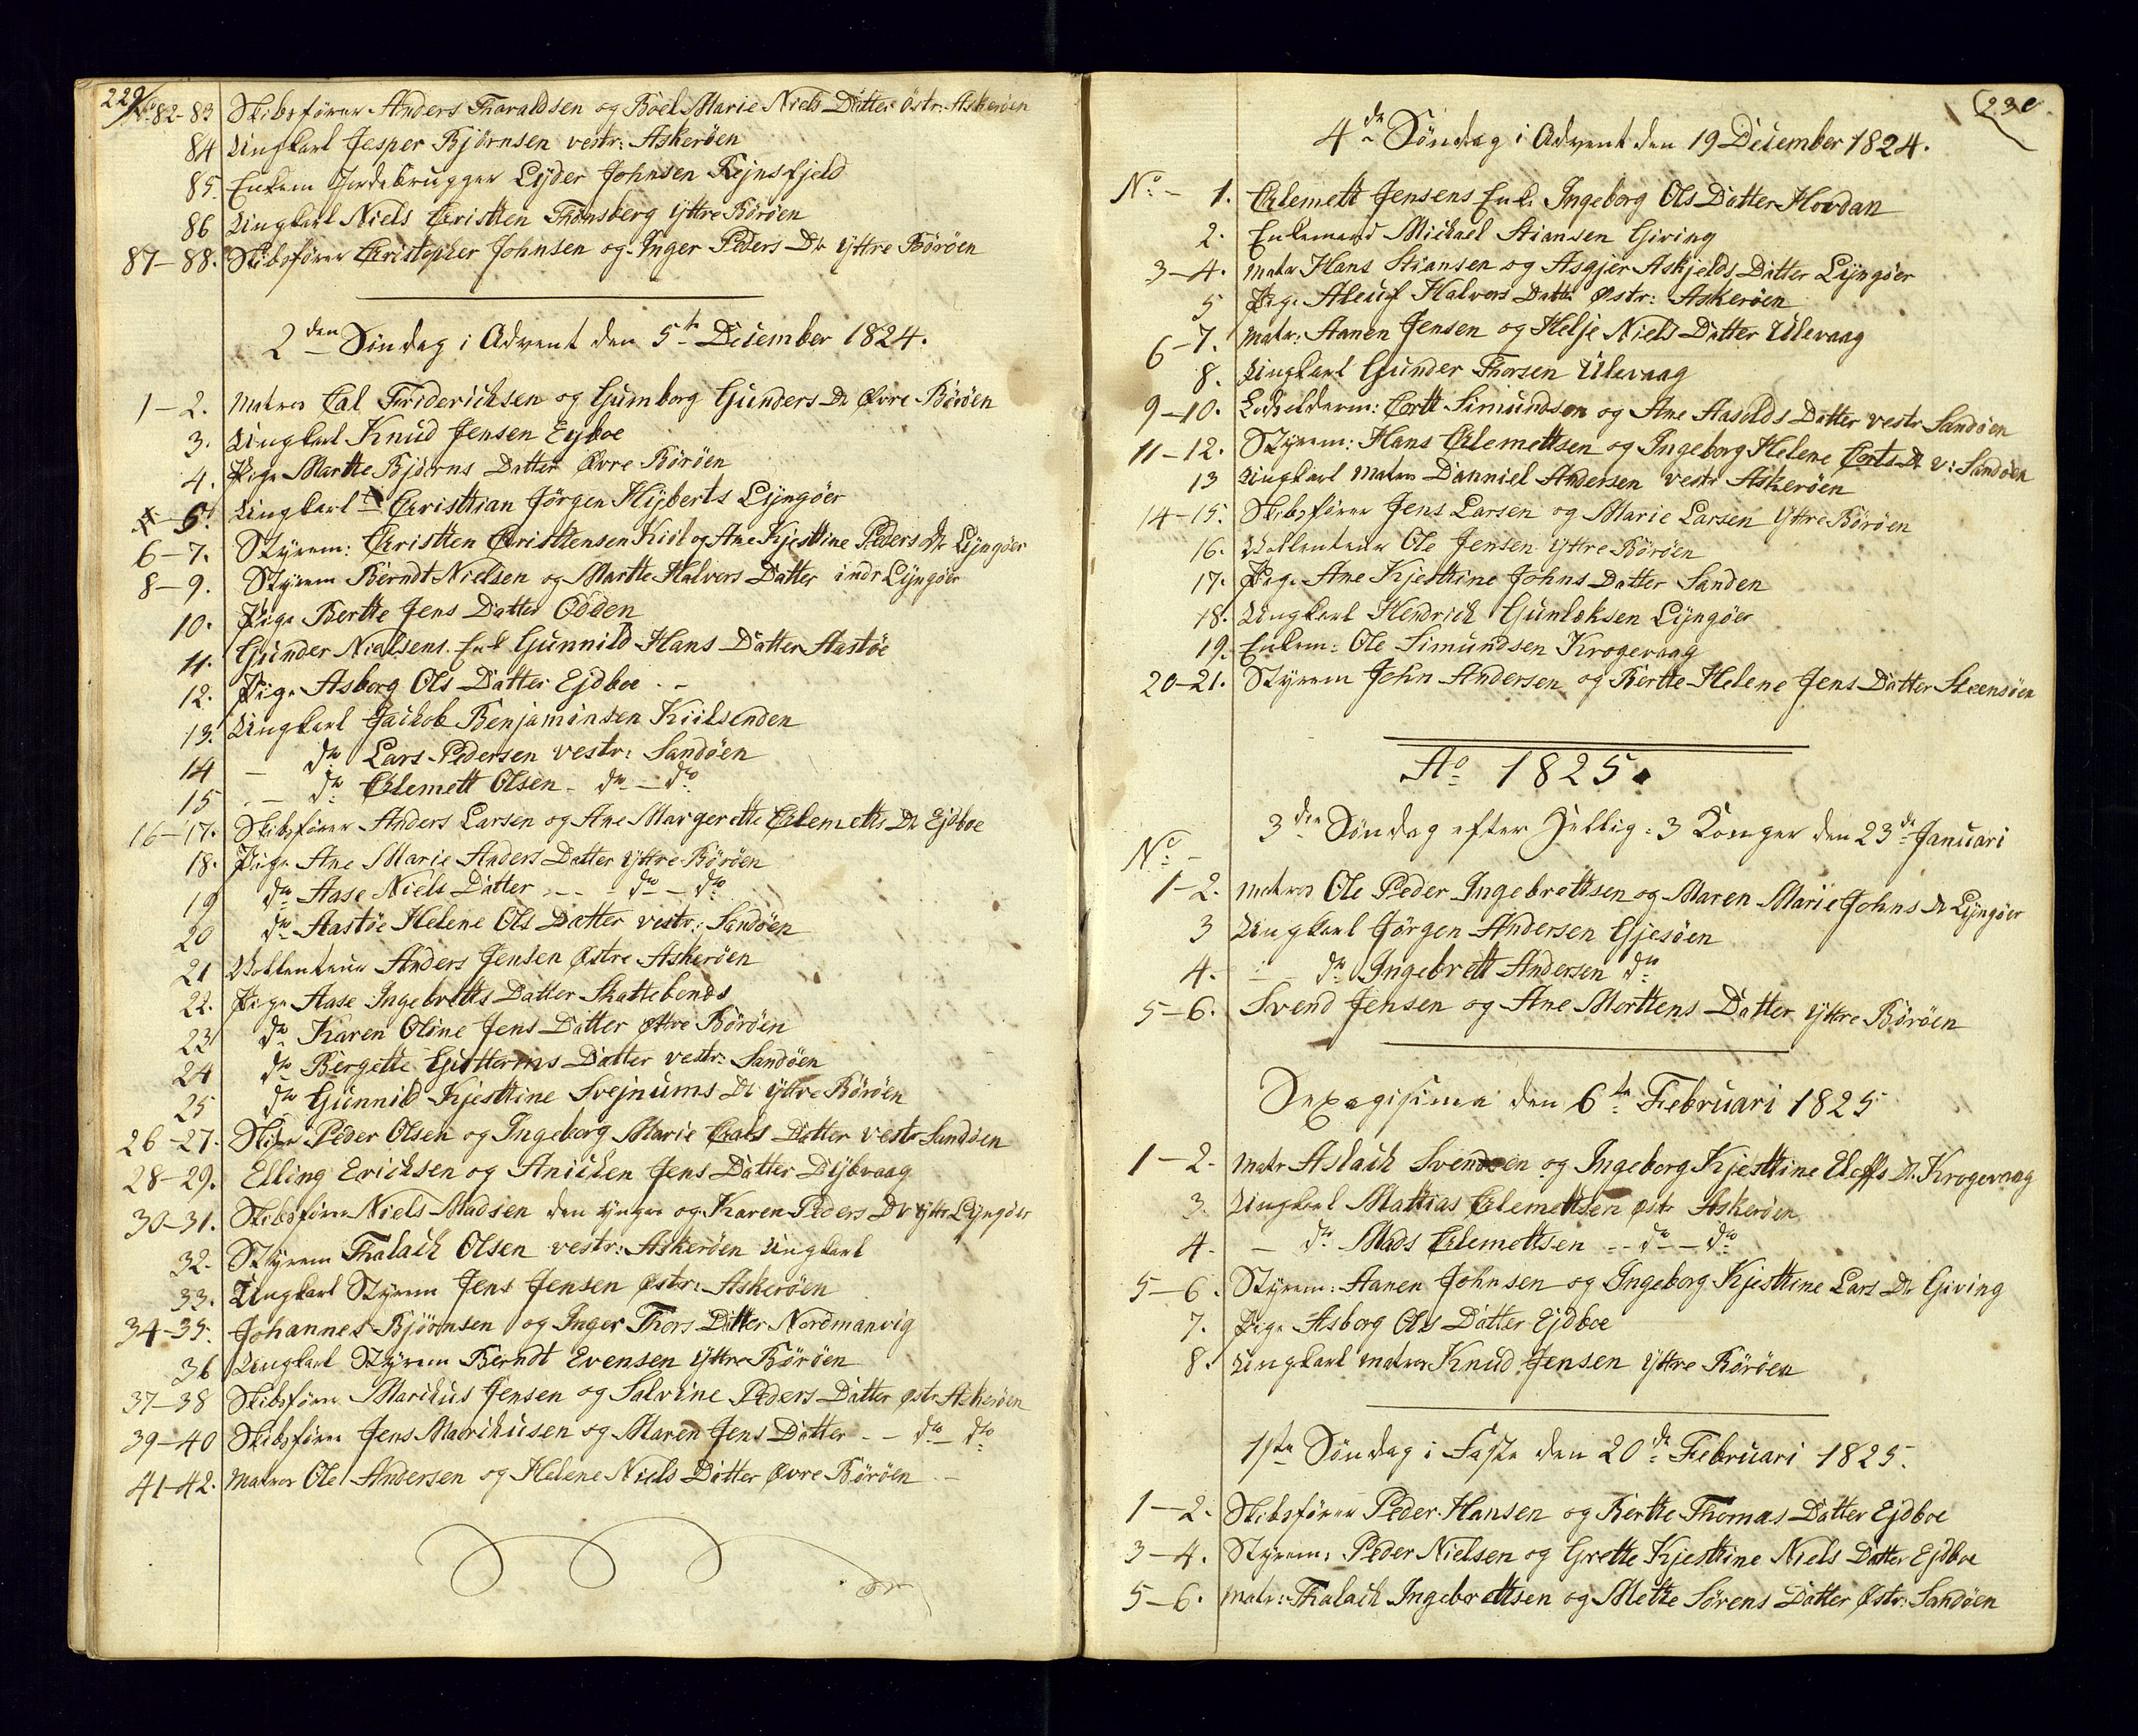 229
No 82-83 Skibsfører Anders Tharaldsen og Boel Marie Niels Datter østr: Askerøen
84 Ungkarl Jesper Bjørnsen vestr: Askerøen
85. Enkem Jordebrugger Lyder Johnsen Rejnsfjeld
86 Ungkarl Niels Christen Thønsberg Yttre Börøen
87-88. Skibsfører Christopher Johnsen og Inger Peders Dr Yttre Börøen
2den Søndag i Advent den 5te December 1824.
1-2. Matros Cal Friderichsen og Gumborg Gunders Dr Øvre Börøen
3. Ungkarl Knud Jensen Eyboe
4. Pige Marthe Bjørns Datter Øvre Börøen
5. Ungkarl Christhian Jørgen Hyberts Lyngøer
6-7. Styrem: Christen Christensen Kiil og Ane Kjesttine Peders Dr Lyngøer
8-9. Styrem Berndt Nielsen og Marthe Halvors Datter indr Lyngøer
10. Pige Berthe Jens Datter Odden
11. Gunder Nielsens Enk Gunnild Hans Datter Aastøe
12. Pige Asborg Ols Datter Ejdboe
13. Ungkarl Jachob Benjaminsen Kiilsenden
14 - do Lars Pedersen vestr: Sandøen
15 - do Clemett Olsen - do - do
16-17. Skibsfører Anders Larsen og Ane Margrethe Clemetts Dr Ejdboe
18. Pige Ane Marie Anders Datter Yttre Börøen
19 do Aase Niels Datter - - do - do
20 do Aastøe Helene Ols Datter vestr: Sandøen
21 Vollenteur Anders Jensen Østre Askerøen
22. Pige Aase Ingebretts Datter Skattebends
23 do Karen Oline Jens Datter Yttre Börøen
24 do Bergette Gutterms Datter vestr: Sandøen
25 do Gunnild Kjesttine Svejnums Dr Yttre Börøen
26-27. Skipr Peder Olsen og Ingeborg Marie Cals Datter vestr Sandøen
28-29. Elling Erichsen og Anichen Jens Datter Dybvaag
30-31. Skibsfører Niels Madsen den yngre og Karen Peders Dr Yttr Lyngøer
32. Styrem Thalach Olsen vestr: Askerøen Ungkarl
33. Ungkarl Styrem Jens Jensen østr: Askerøen
34-35. Johannes Bjørnsen og Inger Thors Datter Nordmanvig
36 Ungkarl Styrem Berndt Evensen Yttre Börøen
37-38 Skibsfører Marchus Jensen og Salvine Peders Datter østr Askerøen
39-40 Skibsfører Jens Marchusen og Maren Jens Datter - - do - do
41-42. Matros Ole Andersen og Helene Niels Datter Øvre Börøen
230
4de Søndag i Advent den 19 December 1824.
No - 1. Clemett Jensens Enk: Ingeborg Ols Datter Hovdan
2. Enkemand Michael Stiansen Giving
3-4. Matr Hans Stiansen og Asgjer Askjelds Datter Lyngøer
5 Pige Aleuf Halvors Dattr Østr: Askerøen
6-7. Matr: Aanen Jensen og Helje Niels Datter Ulevaag
8. Ungkarl Gunder Thorsen Ulevaag
9-10. Ledholderm: Cortt Simundsen og Ane Aasolds Datter vestr Sandøen
11-12. Styrem: Hans Clemettsen og Ingeborg Helene Corts Dr v: Sandøen
13 Ungkarl Matros Danniel Andersen vestr Askerøen
14-15. Skibsfører Jens Larsen og Marie Larsen Yttre Börøen
16. Vollenteur Ole Jensen Yttre Börøen
17. Pige Ane Kjesttine Johns Datter Sanden
18. Ungkarl Hendrich Gunleksen Lyngøer
19. Enkem: Ole Simundsen Krogevaag
20-21. Styrem John Andersen og Berthe Helene Jens Datter Steensøen
Ao 1825.
3die Søndag efter Hellig: 3 Konger den 23de Januari
No -
1-2. Matros Ole Peder Ingebrettsen og Maren Marie Johns Dr Lyngøer
3 Ungkarl Jørgen Andersen Gjesøen
4. - do Ingebrett Andersen do
5-6. Svend Jensen og Ane Morttens Datter Yttre Börøen
Sexagisima den 6te Februari 1825
1-2. Matr Aslach Svendsen og Ingeborg Kjesttine Eleffs Dr. Krogevaag
3. Ungkarl Mattias Clemettsen østr Askerøen
4. - do Mads Clemettsen - - do - do
5-6. Styrem: Aanen Johnsen og Ingeborg Kjesttine Lars Dr Giving
7. Pige Asborg Ols Datter Ejdboe
8. Ungkarl Matros Knud Jensen Yttre Börøen
1ste Søndag i Faste den 20de Februari 1825.
1-2. Skibsfører Peder Hansen og Berthe Thomas Datter Ejdboe
3-4. Styrem: Peder Nielsen og Grette Kjesttine Niels Datter Ejdboe
5-6. Matr: Thalach Ingebrettsen og Mette Sörens Datter Østr: Sandøen